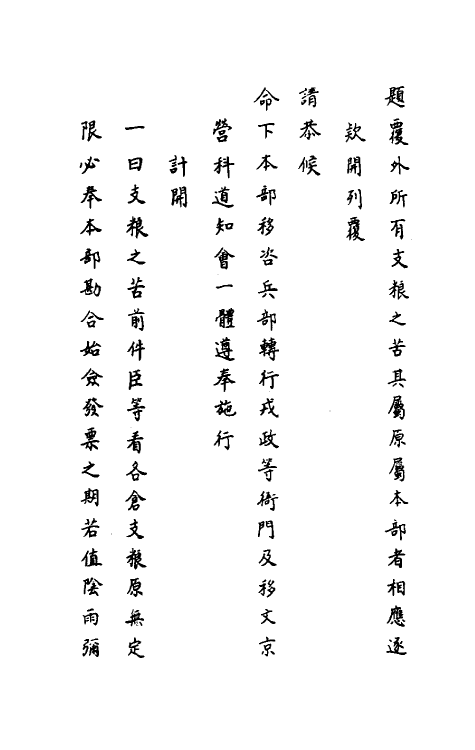 題覆外所有支粮之苦其屬原屬本部者相應逐
欵開列覆
請恭候
命下本部移咨兵部轉行戎政等衙門及移文京
營科道知會一體遵奉施行
計開
一曰支粮之苦前件臣等看各倉支粮原無定
限必奉本部勘合始僉發票之期若值陰雨彌